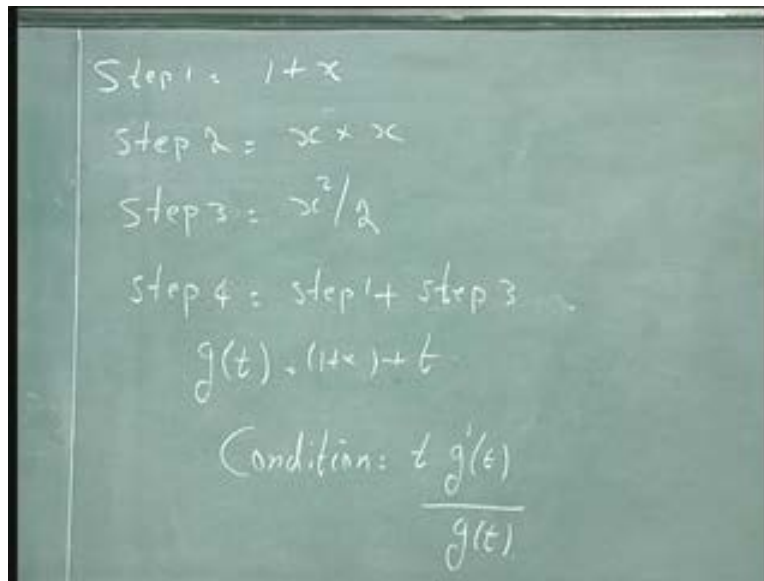 Step 1 = 1+x
Step 2 = x × x
Step 3 = x²/2
Step 4 = step 1 + step 3
g(t) = (1+x) + t
Condition: t g'(t)
g(t)